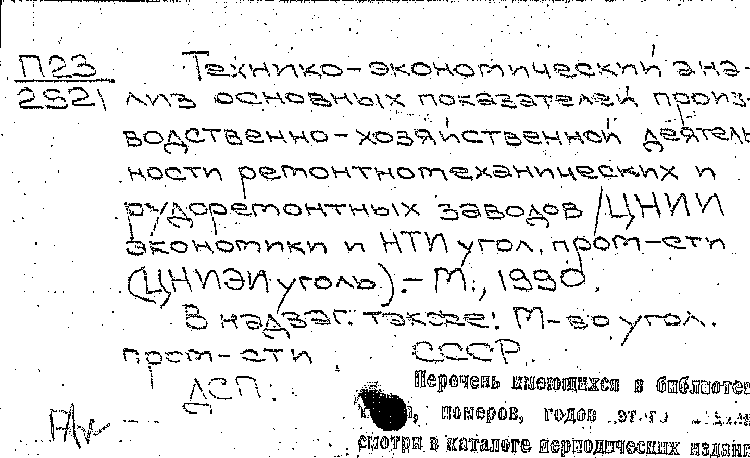 П23
2521
Технико-экономический ана-
лиз основных показателей произ-
водственно-хозяйственной деятель
ности ремонтномеханических и
рудоремонтных заводов /ЦНИИ
экономики и НТИ угол. пром-сти
(ЦНИЭИуголь).-М., 1990.
В надзаг. также: М-во угол.
пром-сти СССР.
ДСП.
Перечень имеющихся в библиотек
номеров, годов
смотри в каталоге периодических издани